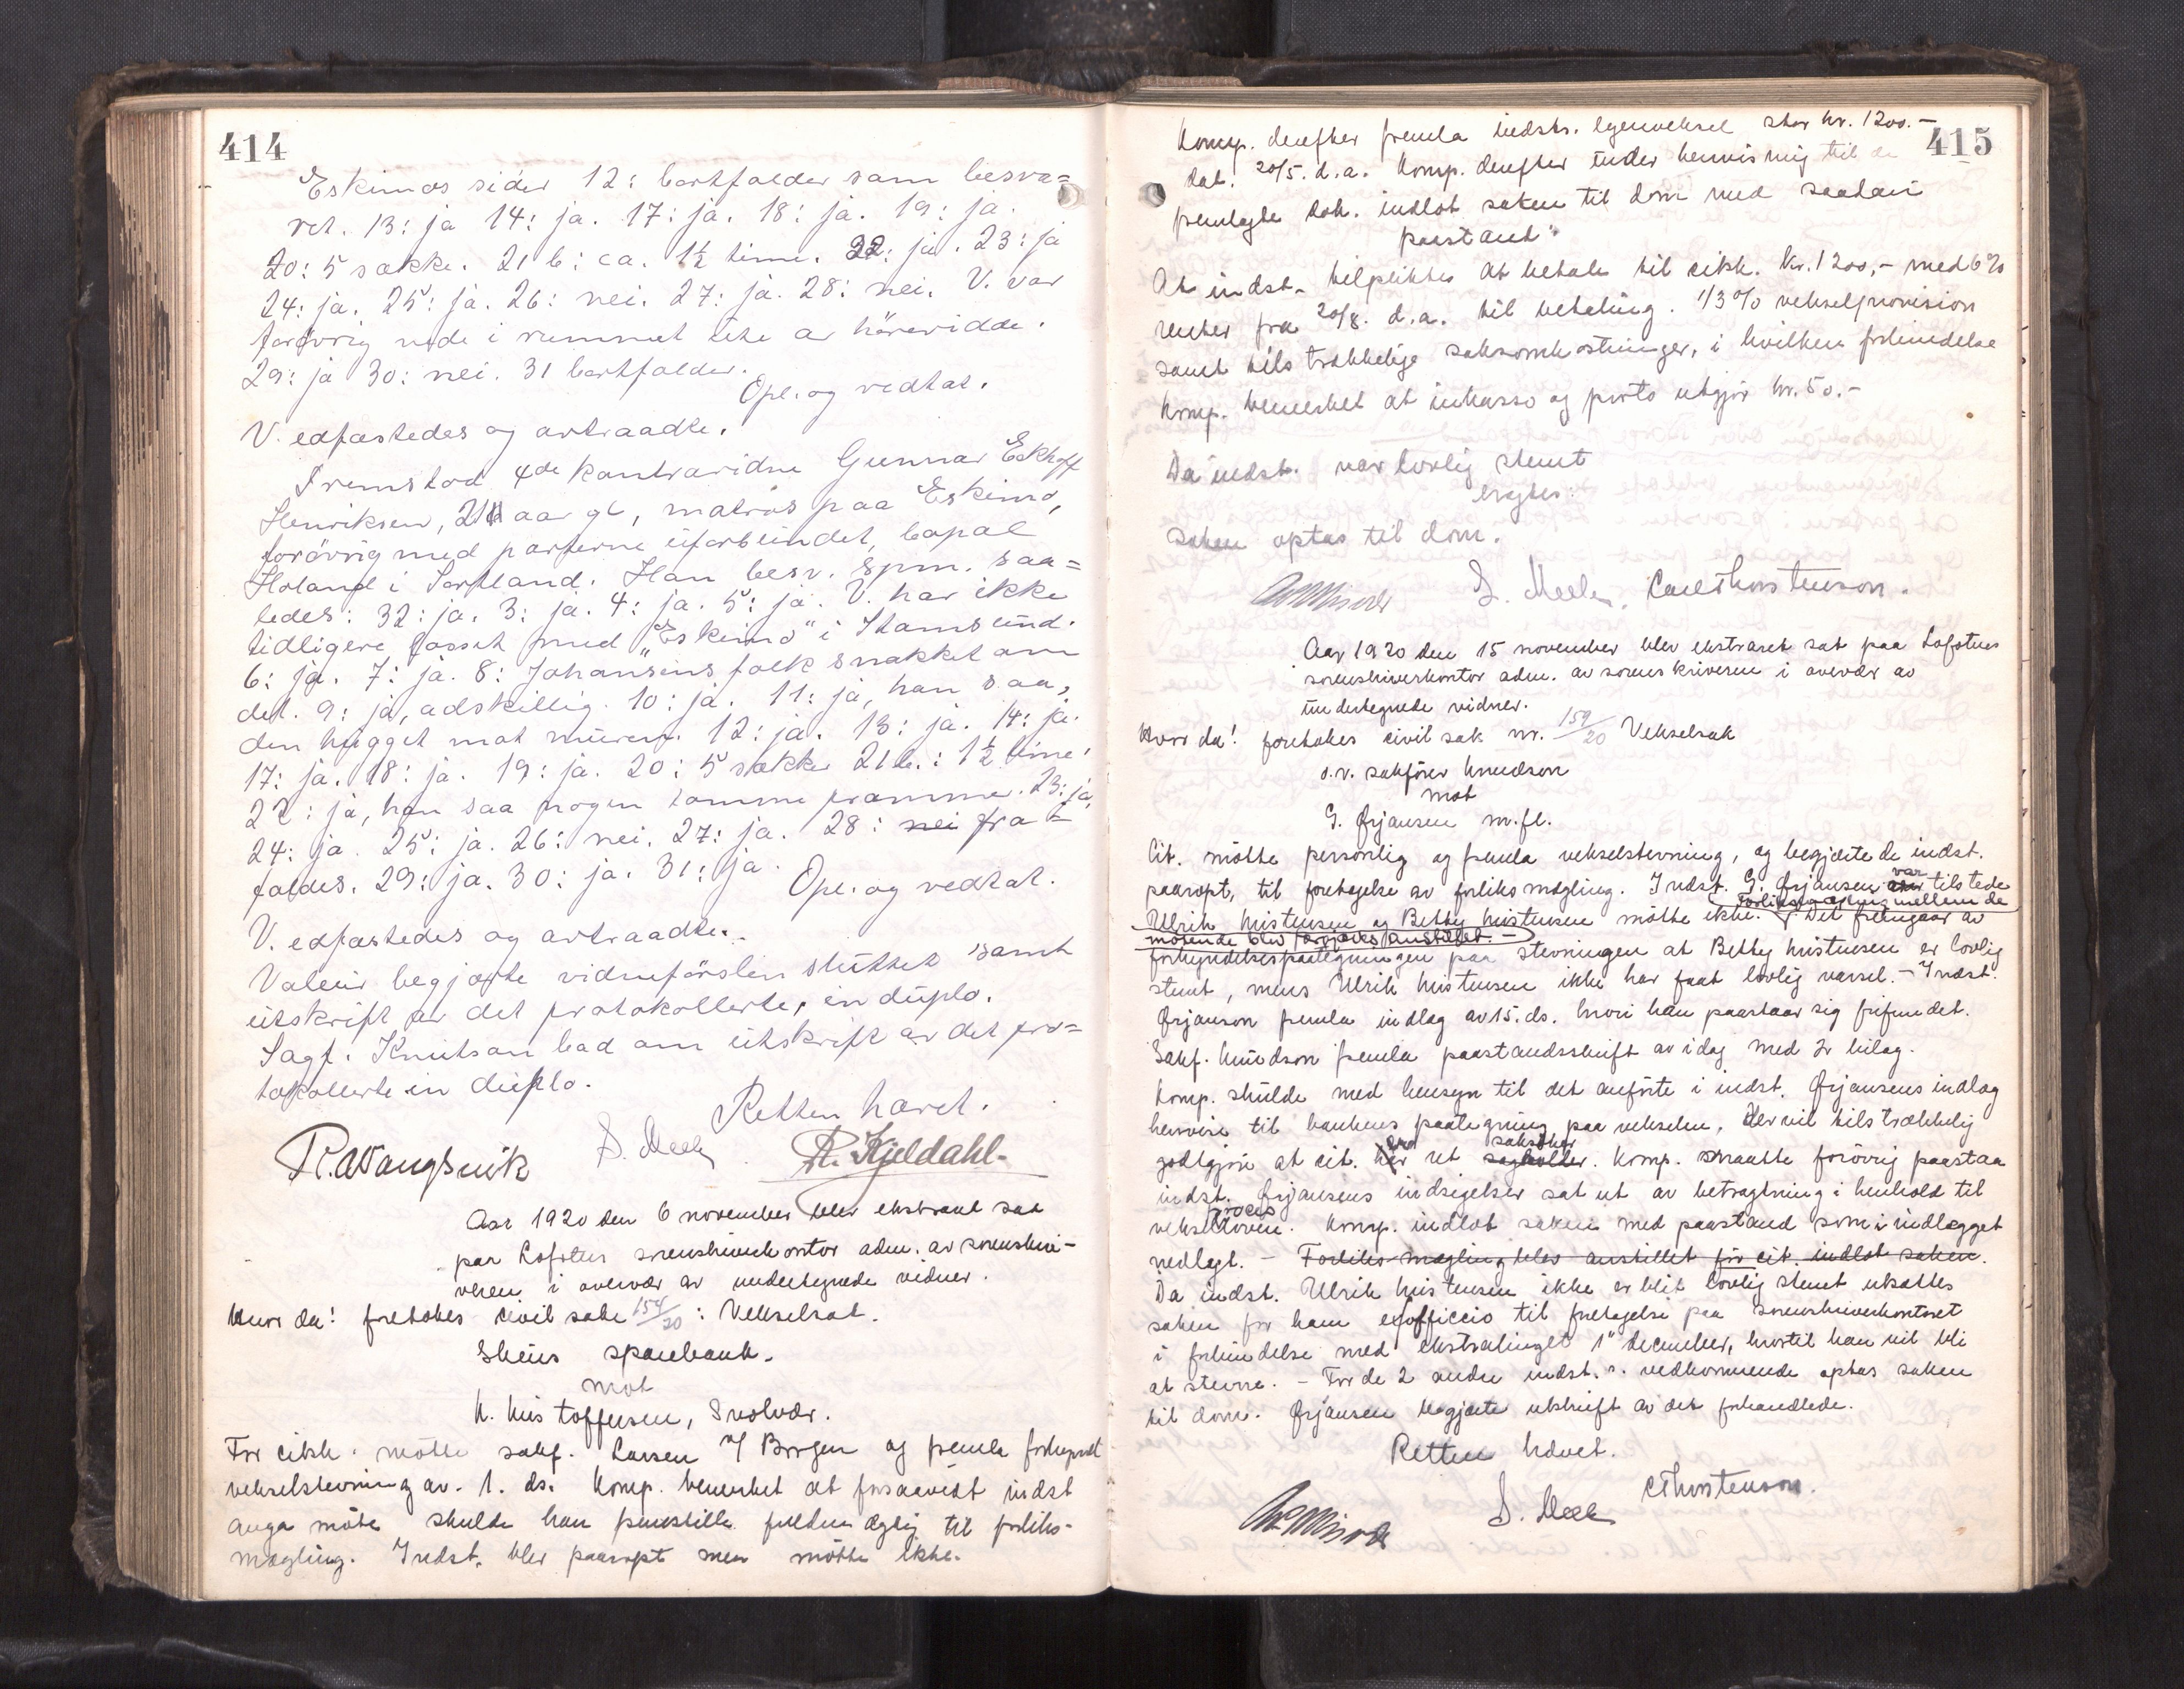 414
Eskimos sider 12: bortfalder som besva=
ret. 13: ja 14: ja. 17: ja. 18: ja. 19: ja.
20: 5 sække. 21 b: ca. 1½ time. 22: ja. 23: ja
24: ja. 25: ja. 26: nei. 27: ja. 28: nei. V. var
forövrig nede i rummet ute av hörevidde.
29: ja 30: nei. 31 bortfalder.
Opl. og vedtat.
V. edfæstedes og avtraadte.
Fremstod 4de kontravidne Gunnar Eckhoff
Henriksen, 21 aar gl, matros paa Eskimo,
forövrig med parterne uforbundet, bopæl
Holand i Sortland. Han besv. spm. saa=
ledes: 32: ja. 3: ja. 4: ja. 5: ja. V. har ikke
tidligere losset med "Eskimo" i Stamsund.
6: ja. 7: ja. 8: Johansens folk snakket om
det. 9: ja, adskillig. 10: ja. 11: ja, han saa,
den hugget mot muren. 12: ja. 13: ja. 14: ja.
17: ja. 18: ja. 19: ja. 20: 5 sækker 21 b.: 1½ time.
22: ja, han saa nogen tomme framme. 23: ja,
24: ja. 25: ja. 26: nei. 27: ja. 28: nei fra=
faldes. 29: ja. 30: ja. 31: ja.
Opl. og vedtat.
V. edfæstedes og avtraadte.
Valeur begjærte vidneförslen sluttet samt
utskrift av det protokollerte, in duplo.
Sagf. Knutson bad om utskrift av det pro=
tokollerte in duplo.
Retten hævet.
R. Kjeldahl
Aar 1920 den 6 november blev ekstraret sat
paa Lofotens sorenskriverkontor adm. av sorenskri-
veren i overvær av undertegnede vidner.
Hvor da! foretokes civil sake 154/20: Vekselsak.
Skeins sparebank.
mot
K. Kristoffersen, Svolvær.
For citk. mötte sakf. Larsen v/ Borgen og fremla forkyndt
vekselstevning av. 1. ds. Komp. bemerket at forsaavidt indst
anga möte skulde han fremstille fuldmægtig til forliks-
mægling. Indst. blev paaropt men mötte ikke.
415
Komp. derefter fremla indstr. egenveksel stor kr. 1200.-
dat. 20/5. d.a. Komp. derefter under henvisning til de
fremlagte dok. indlot saken til dom med saadan
paastand:
At indst. tilpliktes at betale til citk. kr. 1200,- med 6%
renter fra 20/8. d.a. til betaling. 1/3% vekselprovision
samt tilstrækkelige saksomkostninger, i hvilken forbindelse
komp. bemerket at inkasso og porto utgjör kr. 50.-
Da indst. var lovlig stemt
eragtes:
saken optas til dom.
Carl Thorstenson.
Aar 1920 den 15 november blev ekstraret sat paa Lofotens
sorenskriverkontor adm. av sorenskriveren i overvær av
undertegnede vidner.
Hvor da! foretokes civil sak nr. 159/20 Vekselsak
o.r. sakfører Knudson
mot
G. Ørjansen m.fl.
Cit. mötte personlig og fremla vekselstevning, og begjærte de indst.
paaropt, til foretagelse av forliksmægling. Indst. G. Ørjansen var tilstede
Ulrik Kristensen og Betty Kristensen mötte ikke. Forliksmægling mellem de
mötende blev forgjæves anstillet. - Det fremgaar av
forkyndelsespaategningen paa stevningen at Betty Kristensen er lovlig
stemt, mens Ulrik Kristensen ikke har faat lovlig varsel. - Indst.
Ørjansen fremla indlæg av 15. ds. hvori han paastaar sig frifundet.
Sakf. Knudson fremla paastandsskrift av idag med 2 bilag.
Komp. skulde med hensyn til det anförte i indst. Ørjansens indlæg
henvise til bankens paategning paa vekselen, der vil tilstrækkelig
godtgjøre at cit. er ret saksøker. Komp. maatte forövrig paastaa
indst. Ørjansens indsigelser sat ut av betragtning i henhold til
vekselprocesloven. Komp. indlot saken med paastand som i indlægget
nedlagt. - Forliksmægling blev anstillet för cit. indlot saken.
Da indst. Ulrik Kristensen ikke er blit lovlig stemt utsattes
saken for ham exofficcio til foretagelse paa sorenskriverkontoret
i forbindelse med ekstratinget 1" december, hvortil han vil bli
at stevne. - For de 2 andre indst. s. vedkommende optas saken
til dom. Ørjansen begjærte utskrift av det forhandlede.
Retten hævet.
C Thorstenson.